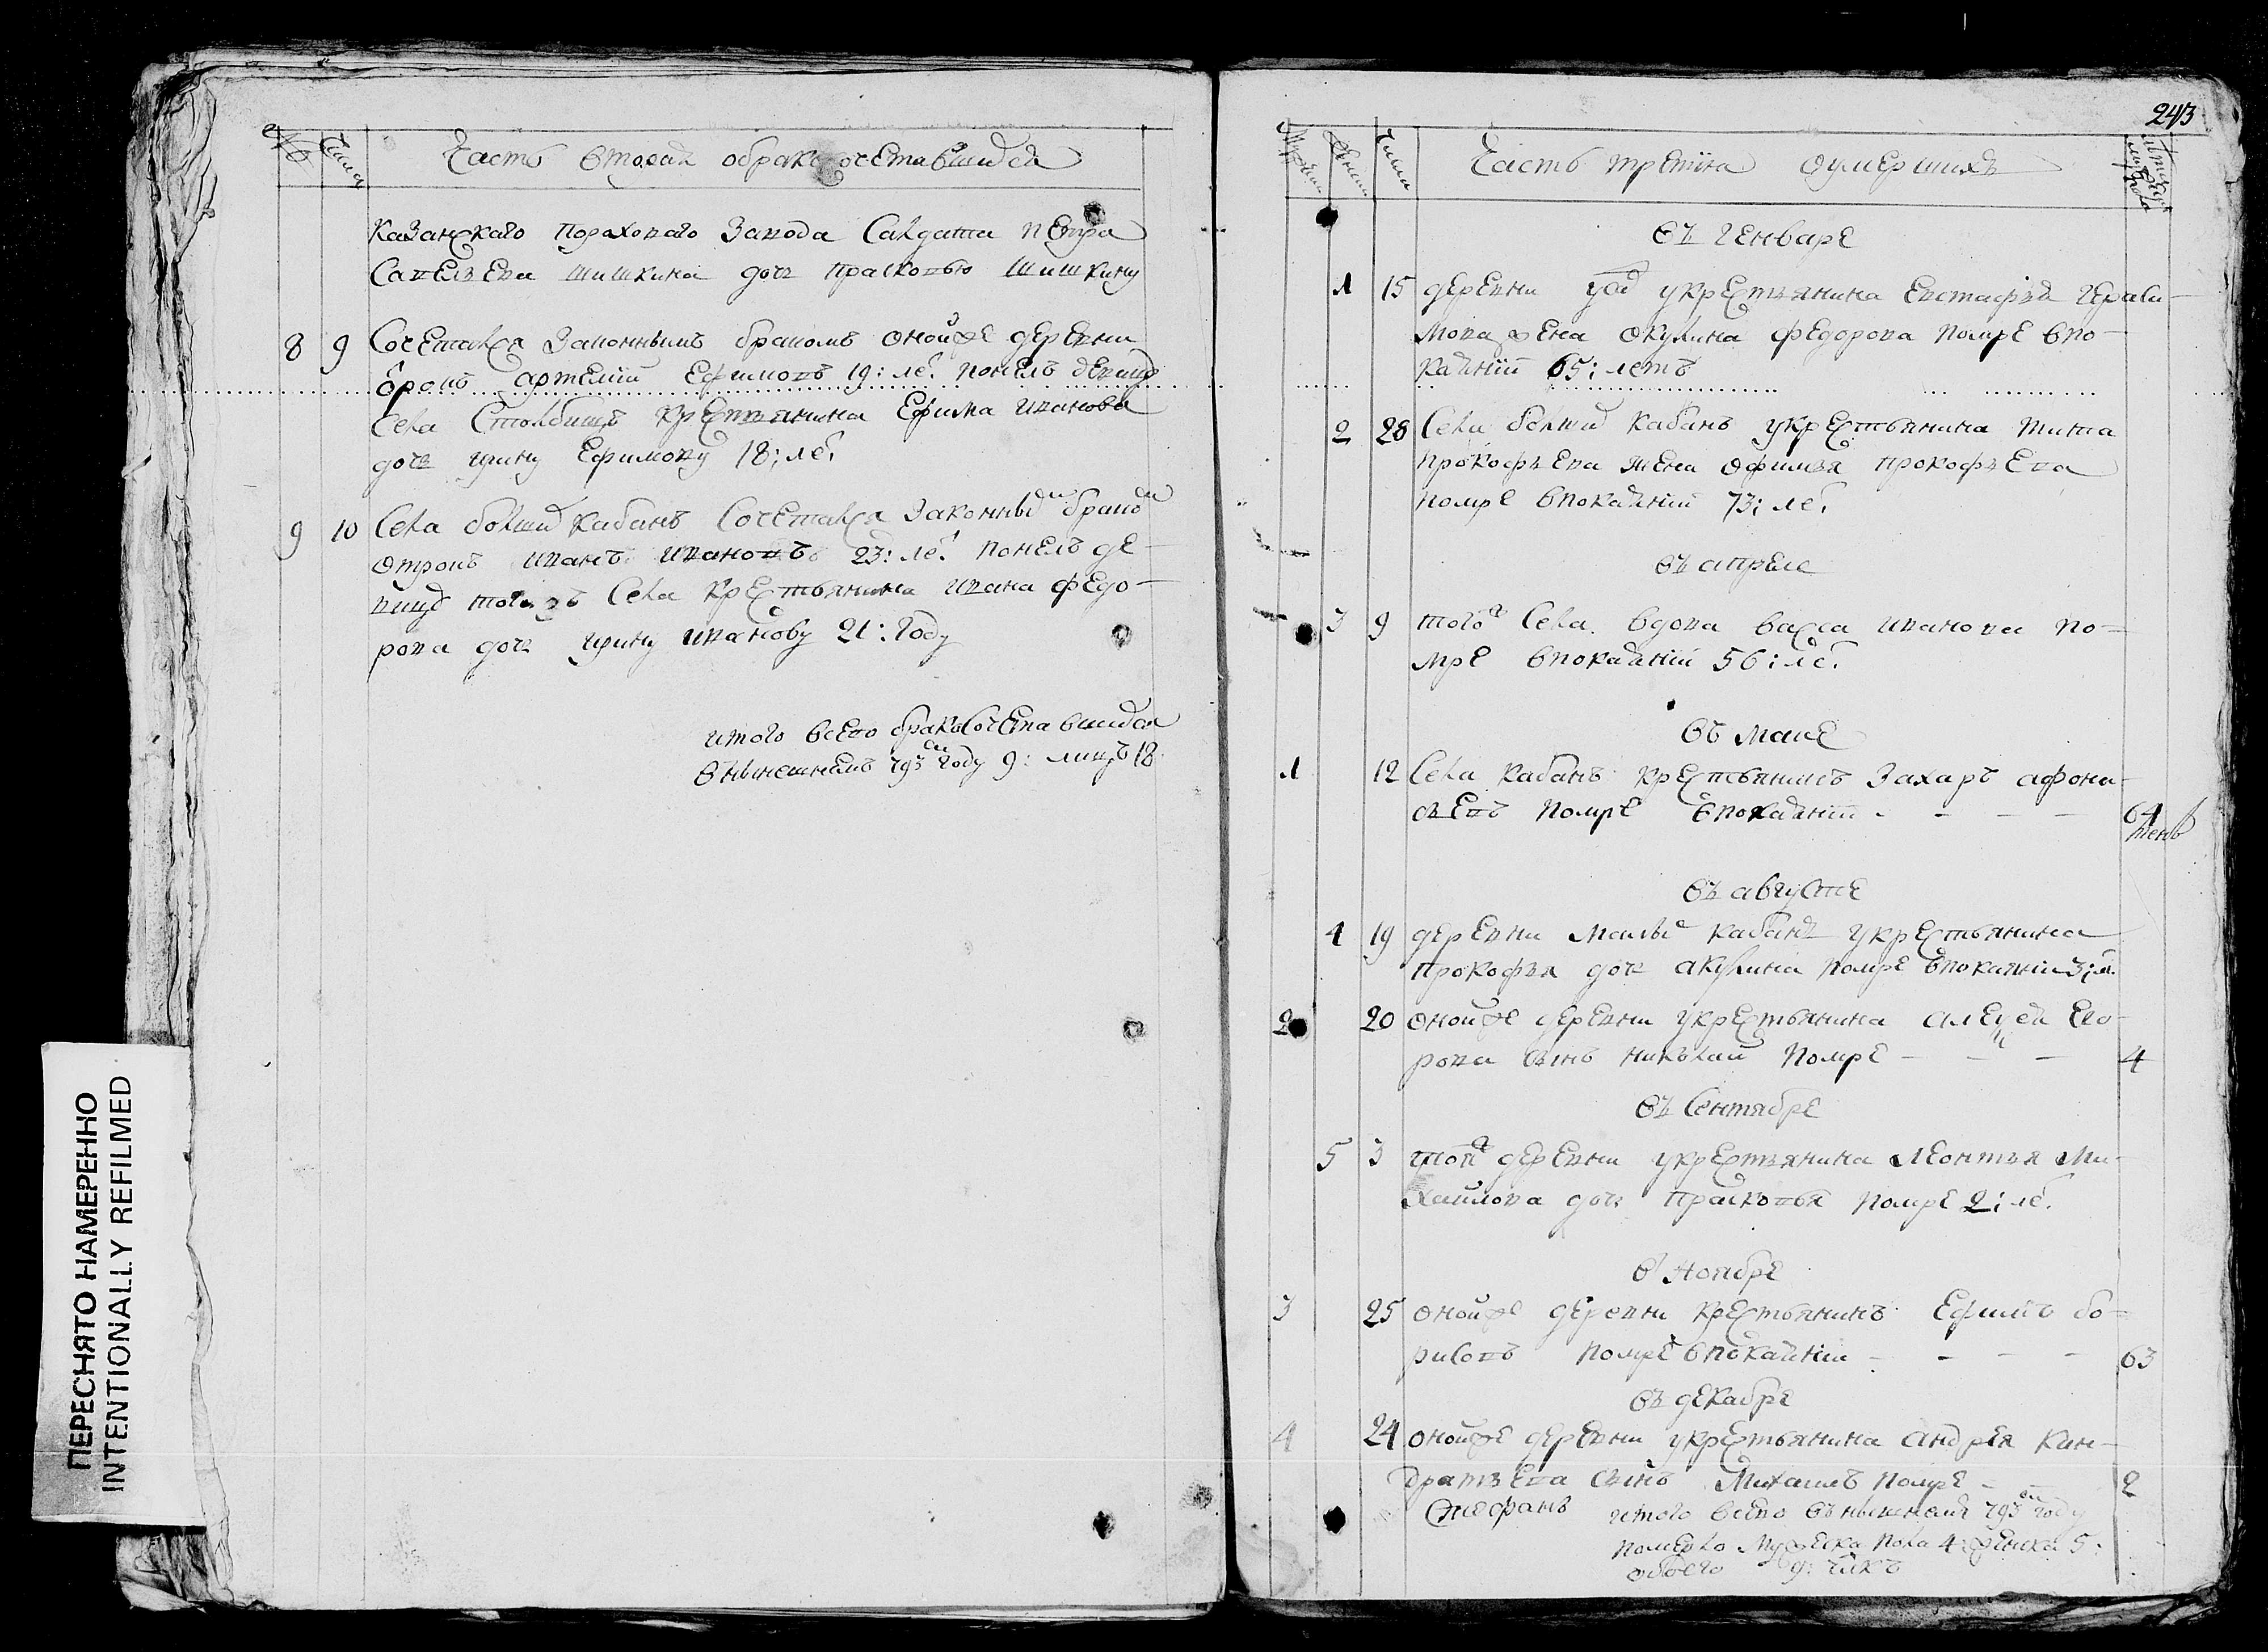 № Числа Часть вторая о бракосочетавшихся
казанскаго пороховаго завода салдата петра
савельева шишкина дочь прасковью шишкину
8 9 Сочетался законнымъ бракомъ оной же деревни
отрокъ артемий Ефимовъ 19: ле: понялъ девицу
села Столбищъ крестьянина Ефима иванова
дочь ирину Ефимову 18; ле:
9 10 Села болших кабанъ Сочетался законным браком
отрокъ иванъ ивановъ 23: ле: понялъ де-
вицу того жъ Села крестьянина ивана федо-
рова дочь ирину иванову 21: году
итого всего бракосочетавшихся
в нынешнемъ 793 м году 9: лицъ 18
243
Мужеск Женск Числа Часть третия о умершихъ
въ генваре
1 15 деревни у крестьянина Евстафья гераси-
мова жена окулина федорова помре в по-
каянии 65; летъ
2 28 Села болших кабанъ у крестьянина тита
прокофьева жена офимья прокофьева
помре в покаянии 73; ле:
въ апреле
3 9 того ж Села вдова васса иванова по-
мре в покаянии 56; ле:
въ мане
1 12 Села кабанъ крестьянинъ Захаръ афона-
сьевъ помре в покаянии - - - - 64
въ августе
4 19 деревни малых кабанъ у крестьянина
прокофья дочь акулина помре в покаянии 3; л.
2 20 оной же деревни у крестьянина алексея Его-
рова сынъ николай помре - - - 4
въ Сентябре
5 3 той ж деревни у крестьянина леонтья Ми-
хаилова дочь прасковья помре 2; ле.
в ноябре
3 25 оной же деревни крестьянинъ Ефимъ бо-
рисовъ помре в покаянии - - - - 63
въ декабре
4 24 оной же деревни у крестьянина андрея кин-
дратьева сынъ Михаилъ помре - 2
Стефанъ итого всего въ нынешнемъ 793 м году
померло мужеска пола 4: женска 5:
обоего 9: члкъ
ПЕРЕСНЯТО НАМЕРЕННО
INTENTIONALLY REFILMED